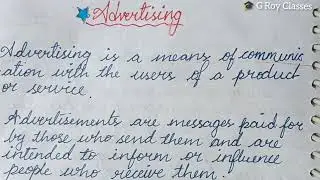 G Roy Classes
Advertising
Advertising is a means of communic
ation with the users of a product
or service.
Advertisements are messages paid for
by those who send them and are
intended to inform or influence
people who receive them.